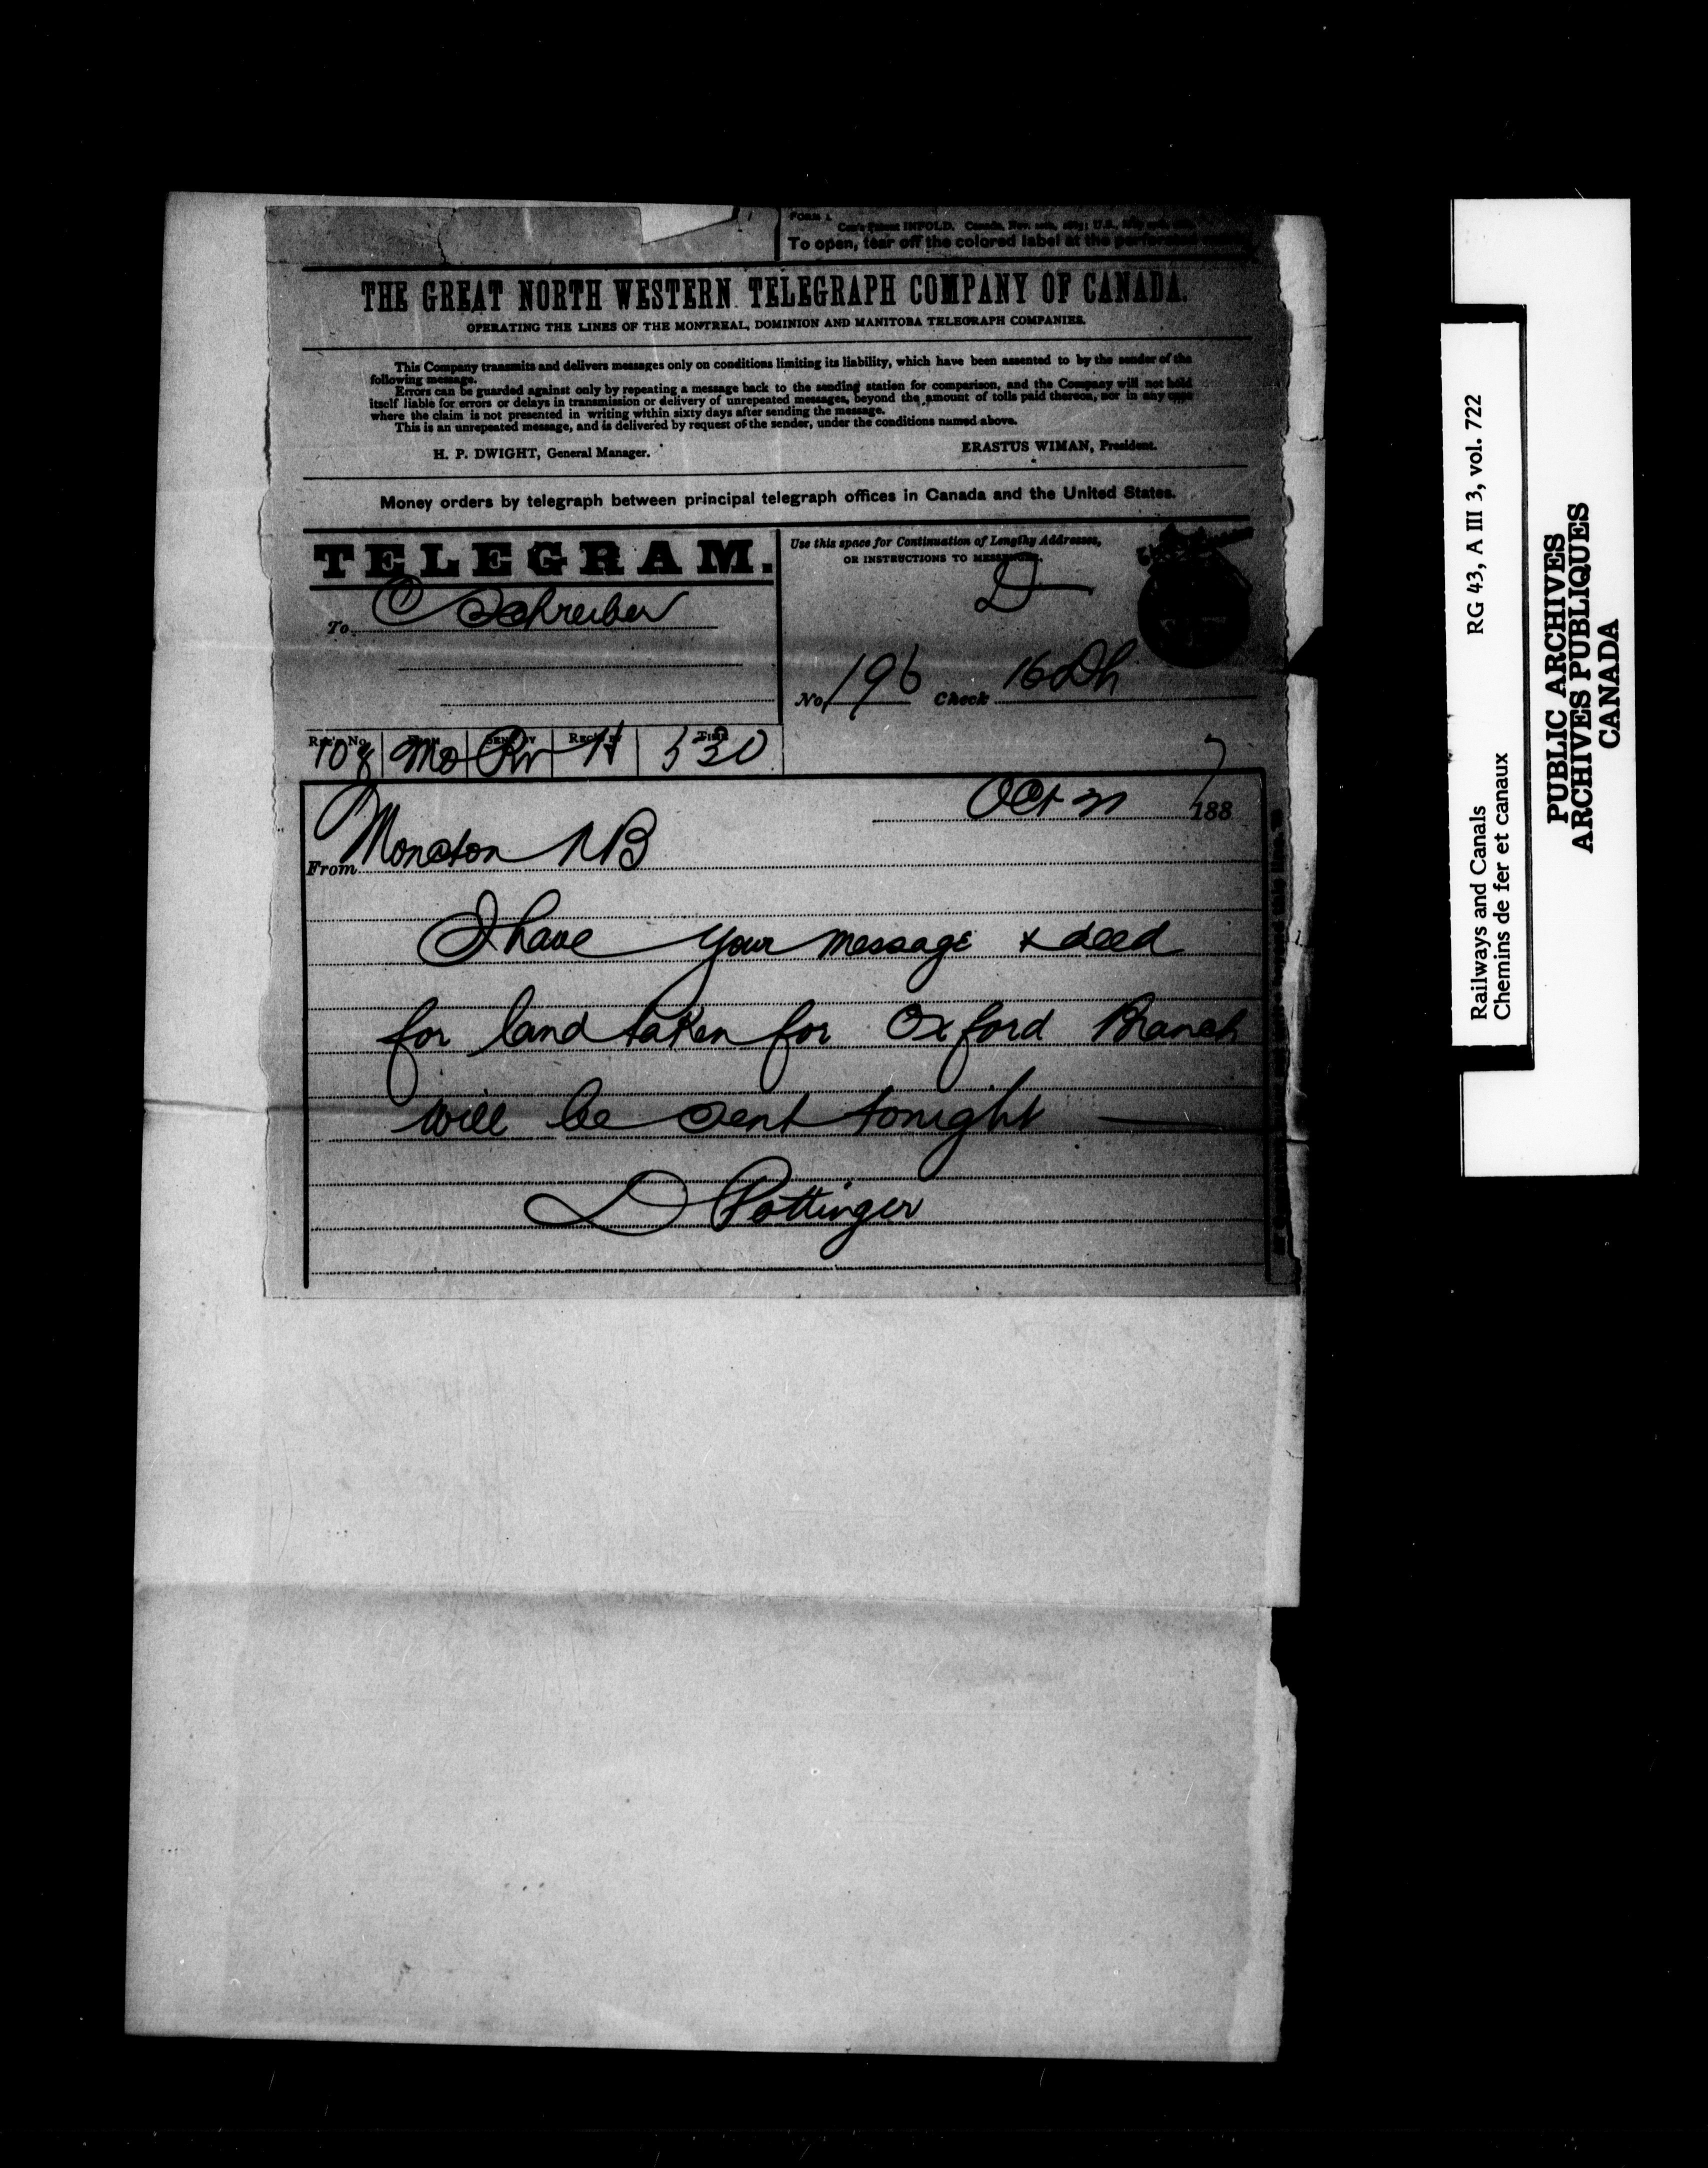 FORM 1.
To open, tear off the colored label at the
THE GREAT NORTH WESTERN TELEGRAPH COMPANY OF CANADA.
OPERATING THE LINES OF THE MONTREAL, DOMINION AND MANITOBA TELEGRAPH COMPANIES.
This Company transmits and delivers messages only on conditions limiting its liability, which have been assented to by the sender of the
following message.
Errors can be guarded against only by repeating a message back to the sending station for comparison, and the Company will not hold
itself liable for errors or delays in transmission or delivery of unrepeated messages, beyond the amount of tolls paid thereon, nor in any case
where the claim is not presented in writing within sixty days after sending the message.
This is an unrepeated message, and is delivered by request of the sender, under the conditions named above.
H. P. DWIGHT, General Manager.
ERASTUS WIMAN, President.
Money orders by telegraph between principal telegraph offices in Canada and the United States.
TELEGRAM.
Use this space for Continuation of Lengthy Addresses,
OR INSTRUCTIONS TO MESSENGER.
D
To C Schreiber
No. 196 Check 16 Dh
Rec'd by
Time
Mo H 530
Oct 21 1887
From Moncton NB
I have your message & deed
for land taken for Oxford Branch
will be sent tonight
D Pottinger
Railways and Canals RG 43, A III 3, vol. 722
Chemins de fer et canaux
PUBLIC ARCHIVES
ARCHIVES PUBLIQUES
CANADA